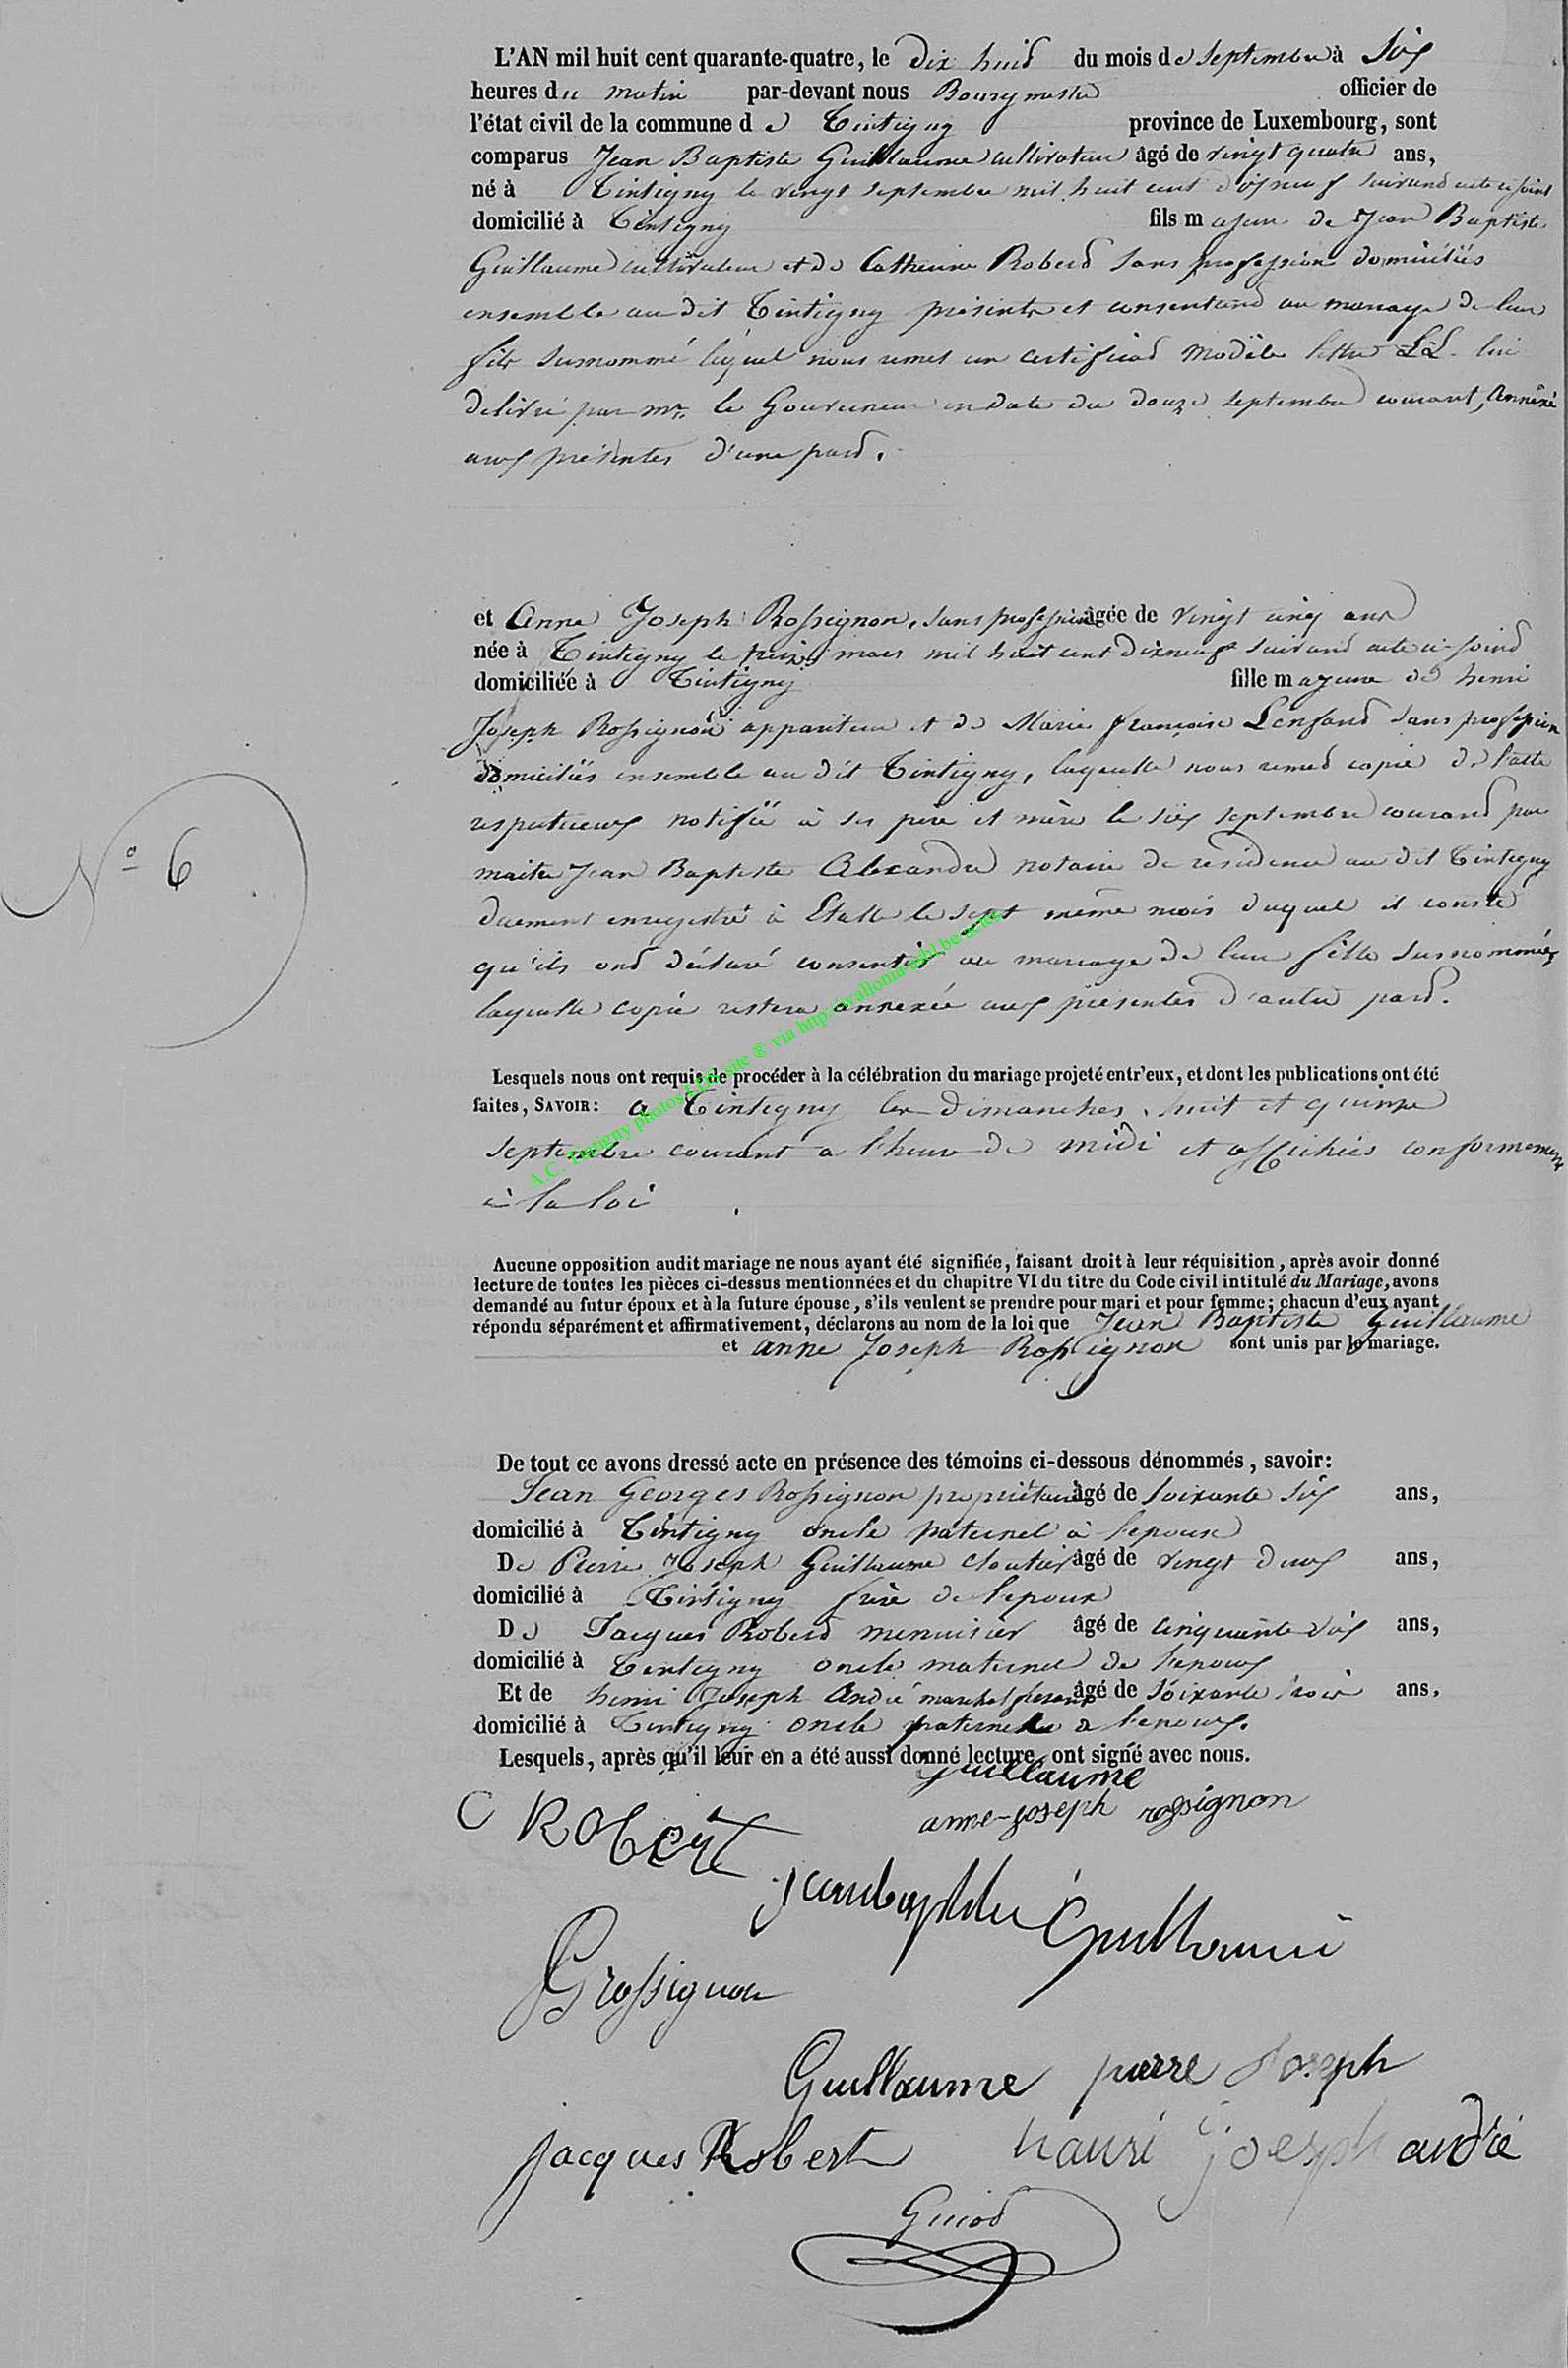 L'AN mil huit cent quarante-quatre, le dix huid du mois de septembre à six
heures du matin par-devant nous Bourgmestre officier de
l'état civil de la commune de Tintigny province de Luxembourg, sont
comparus Jean Baptiste Guillaume cultivateur âgé de vingt quatre ans,
né à Tintigny le vingt septembre mil huit cent dixneuf suivand acte ci joint
domicilié à Tintigny fils majeur de Jean Baptiste
Guillaume cultivateur et de Catherine Roberd sans profession domiciliés
ensemble au dit Tintigny présents et consentand au mariage de leur
fils surnommé lequel nous remet un certificad modèle lettre LL. lui
delivré par mr. le Gouverneur en date du douze septembre courant, annéxé
aux présentes d'une pard.
et Anne Joseph Rossignon, sans profession âgée de vingt cinq ans
née à Tintigny le mars mil huit cent dixneuf suivand acte ci-joind
domiciliée à Tintigny fille majeure de henri
Joseph Rossignon appariteur et de Marie françoise Lenfand sans profession
domiciliés ensemble au dit Tintigny, laquelle nous remed copie de l'acte
respectueux notifié à ses père et mère le six septembre courand par
maitre Jean Baptiste Alexandre notaire de residence au dit Tintigny
duement enregistré à Etalle le sept même mois duquel il conste
qu'ils ond déclaré consentir au mariage de leur fille surnommée
laquelle copie restera annexée aux présentes d'autre pard.
N° 6
Lesquels nous ont requis de procéder à la célébration du mariage projeté entr'eux, et dont les publications ont été
faites, SAVOIR: a Tintigny les dimanches, huit et quinze
septembre courant a l'heure de midi et affichés conformement
à la loi
Aucune opposition audit mariage ne nous ayant été signifiée, faisant droit à leur réquisition, après avoir donné
lecture de toutes les pièces ci-dessus mentionnées et du chapitre VI du titre du Code civil intitulé du Mariage, avons
demandé au futur époux et à la future épouse, s'ils veulent se prendre pour mari et pour femme; chacun d'eux ayant
répondu séparément et affirmativement, déclarons au nom de la loi que Jean Baptiste Guillaume
et anne Joseph Rossignon sont unis par le mariage.
De tout ce avons dressé acte en présence des témoins ci-dessous dénommés, savoir:
Jean Georges Rossignon propriétaire âgé de soixante six ans,
domicilié à Tintigny oncle paternel à l'epouse
De Pierre Joseph Guillaume cloutier âgé de vingt deux ans,
domicilié à Tintigny frère de l'epoux
De Jacques Roberd menuisier âgé de cinquante six ans,
domicilié à Tintigny oncle maternel de l'epoux
Et de henri Joseph André âgé de soixante trois ans,
domicilié à Tintigny oncle paternel a l'epoux.
Lesquels, après qu'il leur en a été aussi donné lecture, ont signé avec nous.
guillaume
C Robert anne-joseph rossignon
jeanbaptiste Guillaume
JGrossignon
Guillaume pierre Joseph
Jacques Robert hanri joesph andré
Guiod
A.C. Tintigny photos LDV site ® via http://wallonia-asbl.be actes